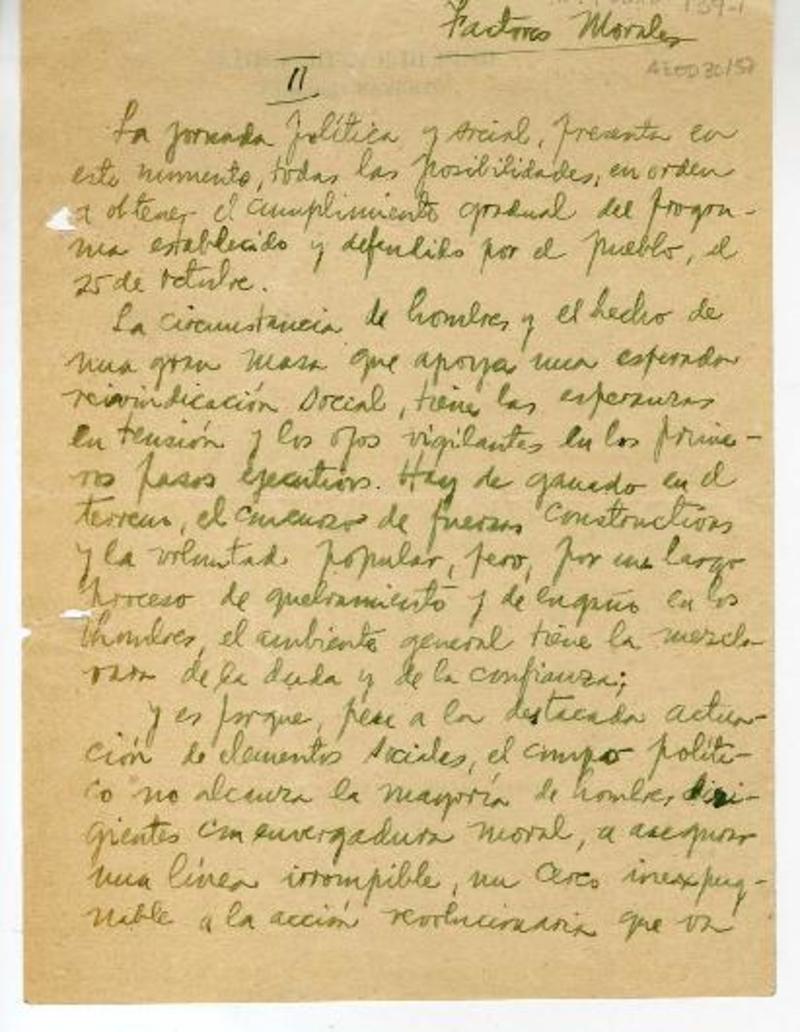 Factores Morales
AE0D30/57
II
La jornada política y social, presenta en
este momento, todas las posibilidades, en orden
a obtener el cumplimiento gradual del progra-
ma establecido y defendido por el pueblo, el
25 de octubre.
La circunstancia de hombres y el hecho de
una gran masa que apoya una esperada
reivindicación social, tiene las esperanzas
en tensión y los ojos vigilantes en los prime-
ros pasos ejecutivos. Hay de ganado en el
terreno, el comienzo de fuerzas constructivas
y la voluntad popular, pero, por un largo
proceso de quebramiento y de engaño en los
hombres, el ambiente general tiene la mezcla
rara de la duda y de la confianza;
y es porque, pese a la destacada actua-
ción de elementos sociales, el campo políti-
co no alcanza la mayoría de hombres diri-
gientes con envergadura moral, a asegurar
una línea irrompible, un cerco inexpug-
nable a la acción revolucionaria que va